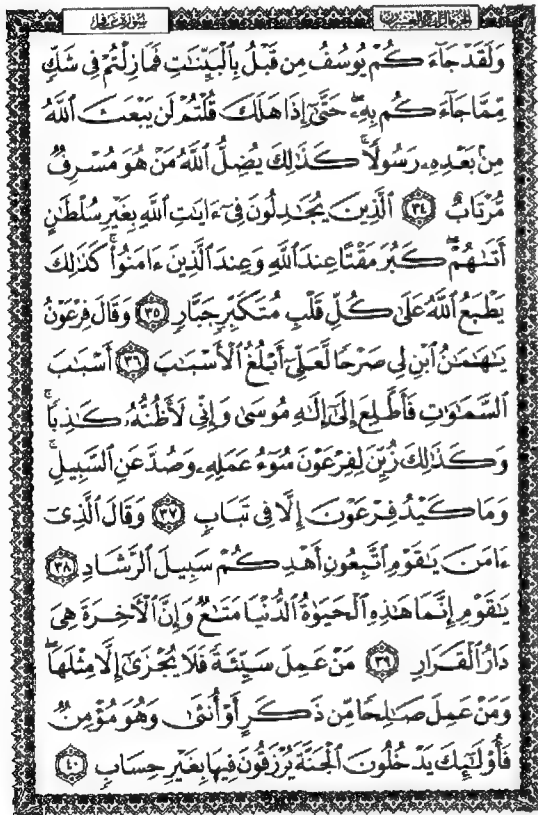 سُورَةُ غَافِر
الجزء الرابع والعشرون
وَلَقَدْ جَآءَكُمْ يُوسُفُ مِن قَبْلُ بِٱلْبَيِّنَٰتِ فَمَا زِلْتُمْ فِى شَكٍّ
مِّمَّا جَآءَكُم بِهِۦ ۖ حَتَّىٰٓ إِذَا هَلَكَ قُلْتُمْ لَن يَبْعَثَ ٱللَّهُ
مِنۢ بَعْدِهِۦ رَسُولًا ۚ كَذَٰلِكَ يُضِلُّ ٱللَّهُ مَنْ هُوَ مُسْرِفٌ
مُّرْتَابٌ ﴿٣٤﴾ ٱلَّذِينَ يُجَٰدِلُونَ فِىٓ ءَايَٰتِ ٱللَّهِ بِغَيْرِ سُلْطَٰنٍ
أَتَىٰهُمْ ۖ كَبُرَ مَقْتًا عِندَ ٱللَّهِ وَعِندَ ٱلَّذِينَ ءَامَنُوا۟ ۚ كَذَٰلِكَ
يَطْبَعُ ٱللَّهُ عَلَىٰ كُلِّ قَلْبِ مُتَكَبِّرٍ جَبَّارٍ ﴿٣٥﴾ وَقَالَ فِرْعَوْنُ
يَٰهَٰمَٰنُ ٱبْنِ لِى صَرْحًا لَّعَلِّىٓ أَبْلُغُ ٱلْأَسْبَٰبَ ﴿٣٦﴾ أَسْبَٰبَ
ٱلسَّمَٰوَٰتِ فَأَطَّلِعَ إِلَىٰٓ إِلَٰهِ مُوسَىٰ وَإِنِّى لَأَظُنُّهُۥ كَٰذِبًا ۚ
وَكَذَٰلِكَ زُيِّنَ لِفِرْعَوْنَ سُوٓءُ عَمَلِهِۦ وَصُدَّ عَنِ ٱلسَّبِيلِ ۚ
وَمَا كَيْدُ فِرْعَوْنَ إِلَّا فِى تَبَابٍ ﴿٣٧﴾ وَقَالَ ٱلَّذِىٓ
ءَامَنَ يَٰقَوْمِ ٱتَّبِعُونِ أَهْدِكُمْ سَبِيلَ ٱلرَّشَادِ ﴿٣٨﴾
يَٰقَوْمِ إِنَّمَا هَٰذِهِ ٱلْحَيَوٰةُ ٱلدُّنْيَا مَتَٰعٌ وَإِنَّ ٱلْءَاخِرَةَ هِىَ
دَارُ ٱلْقَرَارِ ﴿٣٩﴾ مَنْ عَمِلَ سَيِّئَةً فَلَا يُجْزَىٰٓ إِلَّا مِثْلَهَا ۖ
وَمَنْ عَمِلَ صَٰلِحًا مِّن ذَكَرٍ أَوْ أُنثَىٰ وَهُوَ مُؤْمِنٌ
فَأُو۟لَٰٓئِكَ يَدْخُلُونَ ٱلْجَنَّةَ يُرْزَقُونَ فِيهَا بِغَيْرِ حِسَابٍ ﴿٤٠﴾